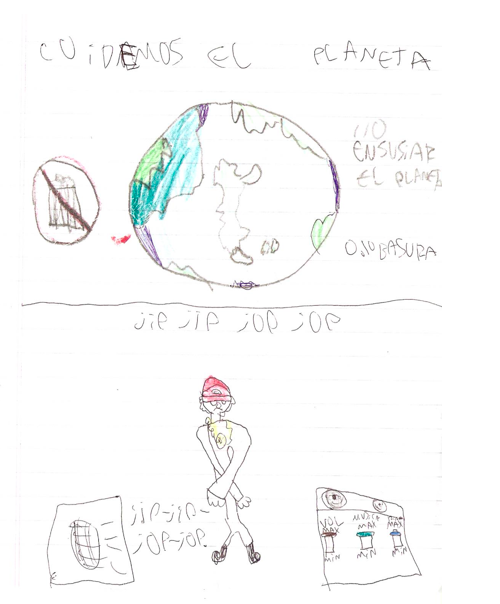 CUIDEMOS EL PLANETA
NO
ENSUSIAR
EL PLANETA
O.NO BASURA
jip jip jop jop
jip-jip-
jop-jop
VOL MUSICA
MAX MAX MAX
MIN MIN MIN